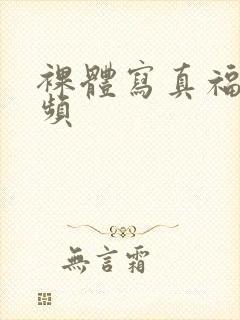 裸體寫真福
頻
無言霜